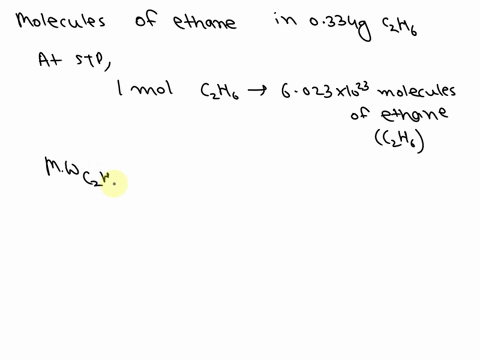 Molecules of ethane in 0.334g C2H6
At STP,
1 mol C2H6 → 6.023×10^23 molecules
of ethane
(C2H6)
M.W C2H